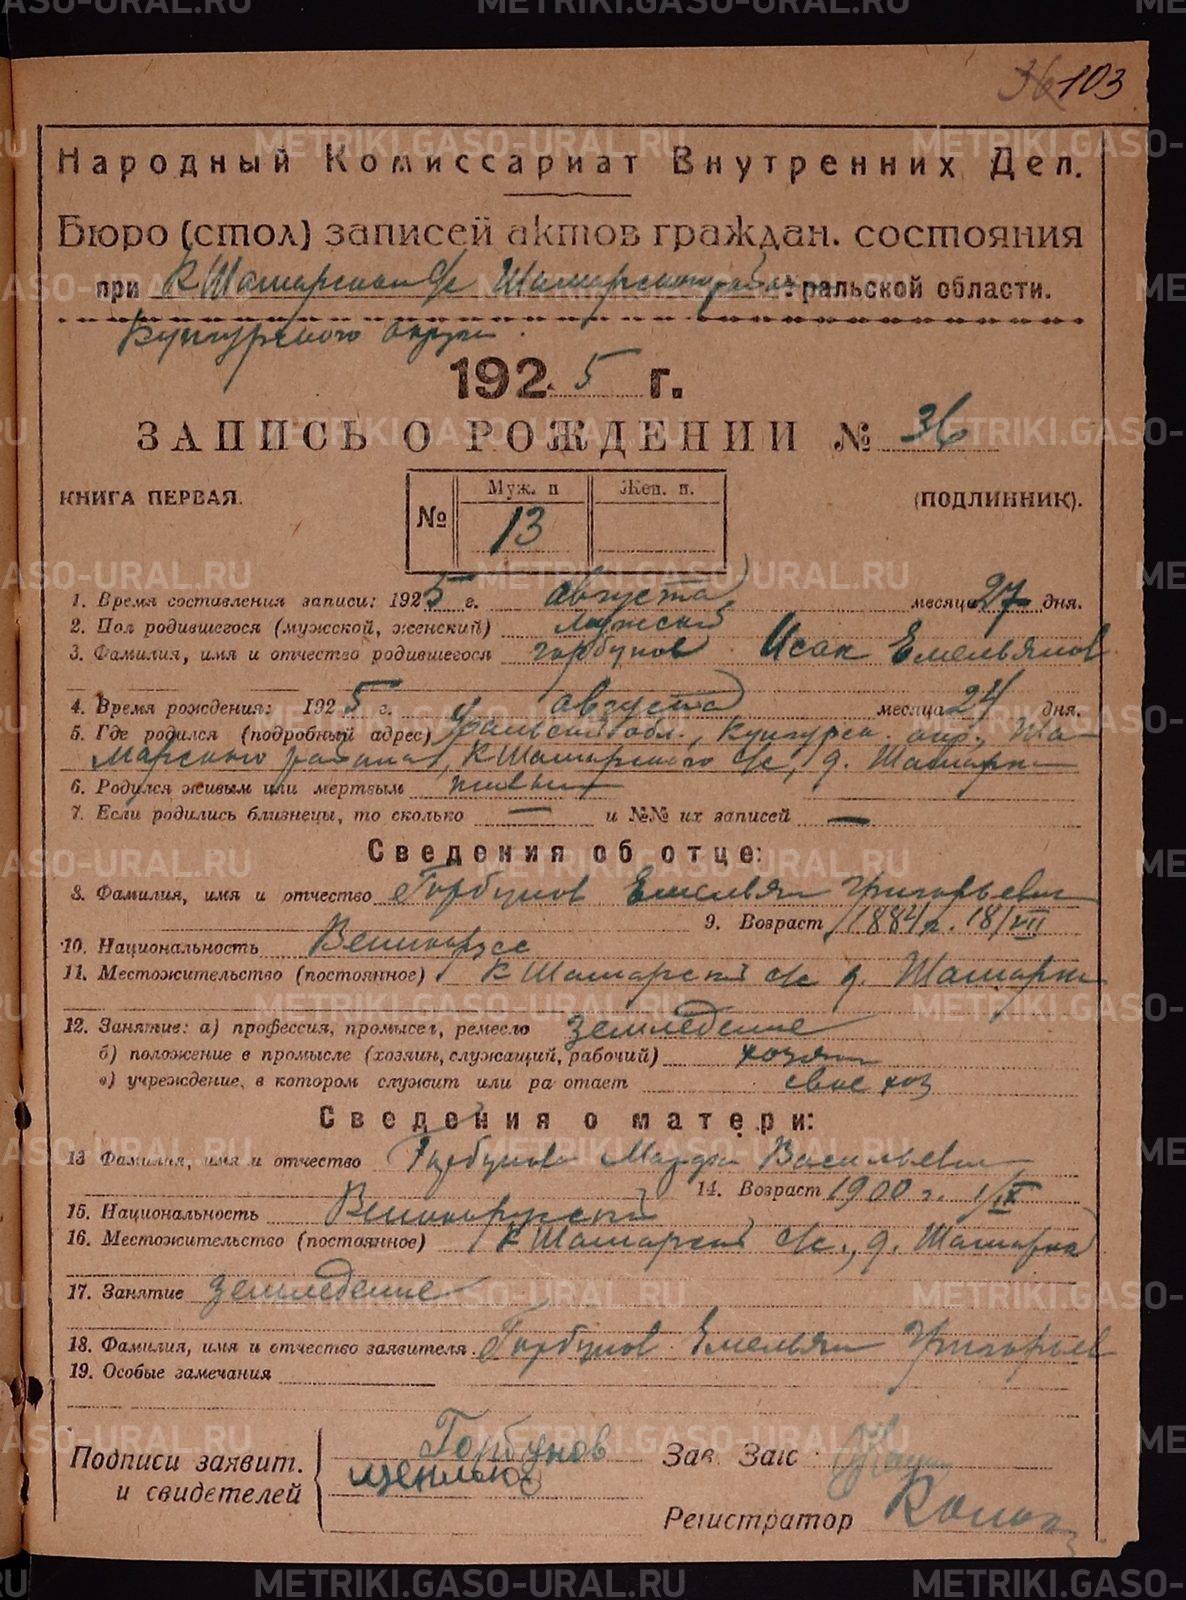 36 103
Народный Комиссариат Внутренних Дел.
Бюро (стол) записей актов граждан. состояния
при К Шамарском с/с Шамарского района Уральской области.
Кунгурского округа.
1925 г.
ЗАПИСЬ О РОЖДЕНИИ № 36
КНИГА ПЕРВАЯ. (ПОДЛИННИК).
№ Муж. п Жен. п.
13
1. Время составления записи: 1925 г. августа месяца 27 дня.
2. Пол родившегося (мужской, женский) мужской
3. Фамилия, имя и отчество родившегося горбунов Исак Емельянов
4. Время рождения: 1925 г. августа месяца 24 дня.
5. Где родился (подробный адрес) Уральской обл., Кунгурск. окр., Ша-
марского района, К Шамарского с/с, д. Шамарка
6. Родился живым или мертвым живым
7. Если родились близнецы, то сколько — и №№ их записей —
Сведения об отце:
8. Фамилия, имя и отчество Горбунов Емельян Григорьевич
9. Возраст 1884 г. 18/VII
10. Национальность Великорусс
11. Местожительство (постоянное) К Шамарский с/с д. Шамарка
12. Занятие: а) профессия, промысел, ремесло земледелие
б) положение в промысле (хозяин, служащий, рабочий) хозяин
в) учреждение, в котором служит или ра отает свое хоз
Сведения о матери:
13 Фамилия, имя и отчество Горбунова Марфа Васильевна
14. Возраст 1900 г. 1/IX
15. Национальность Великорусский
16. Местожительство (постоянное) К Шамарский с/с., д. Шамарка
17. Занятие земледелие
18. Фамилия, имя и отчество заявителя Горбунов Емельян Григорьев
19. Особые замечания
Подписи заявит. Горбунов Зав. Загс
и свидетелей
Регистратор
METRIKI.GASO-URAL.RU